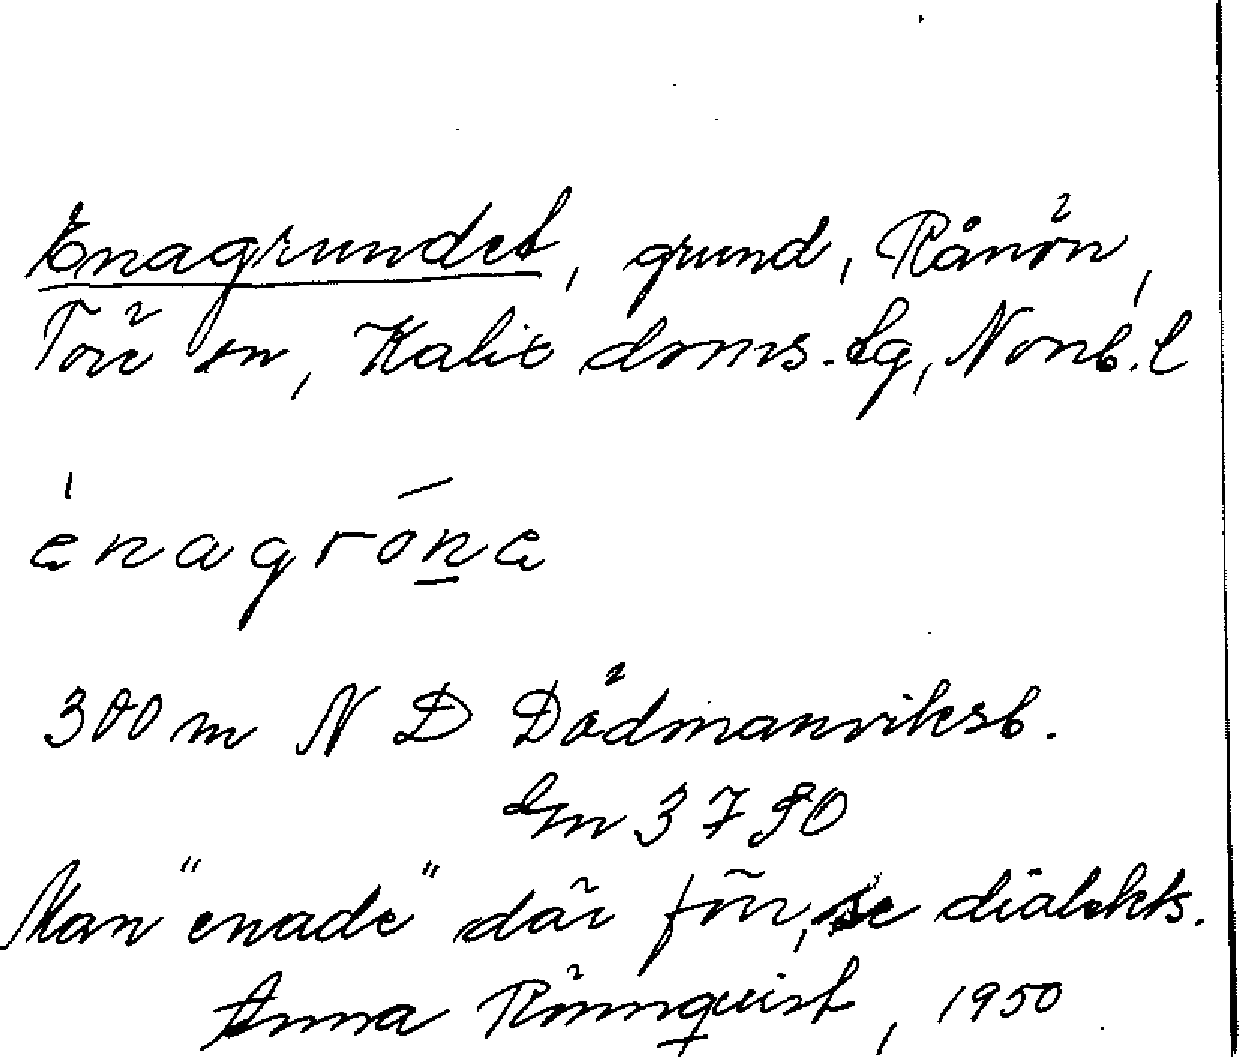 Enagrundet, grund, Rånön,
Töre sn, Kalix doms.lg, Norrb. l
énagróna
300 m N D Dödmanviksb.
Em 3790
Man "enade" där förr, se dialekts.
Anna Rönnquist, 1950